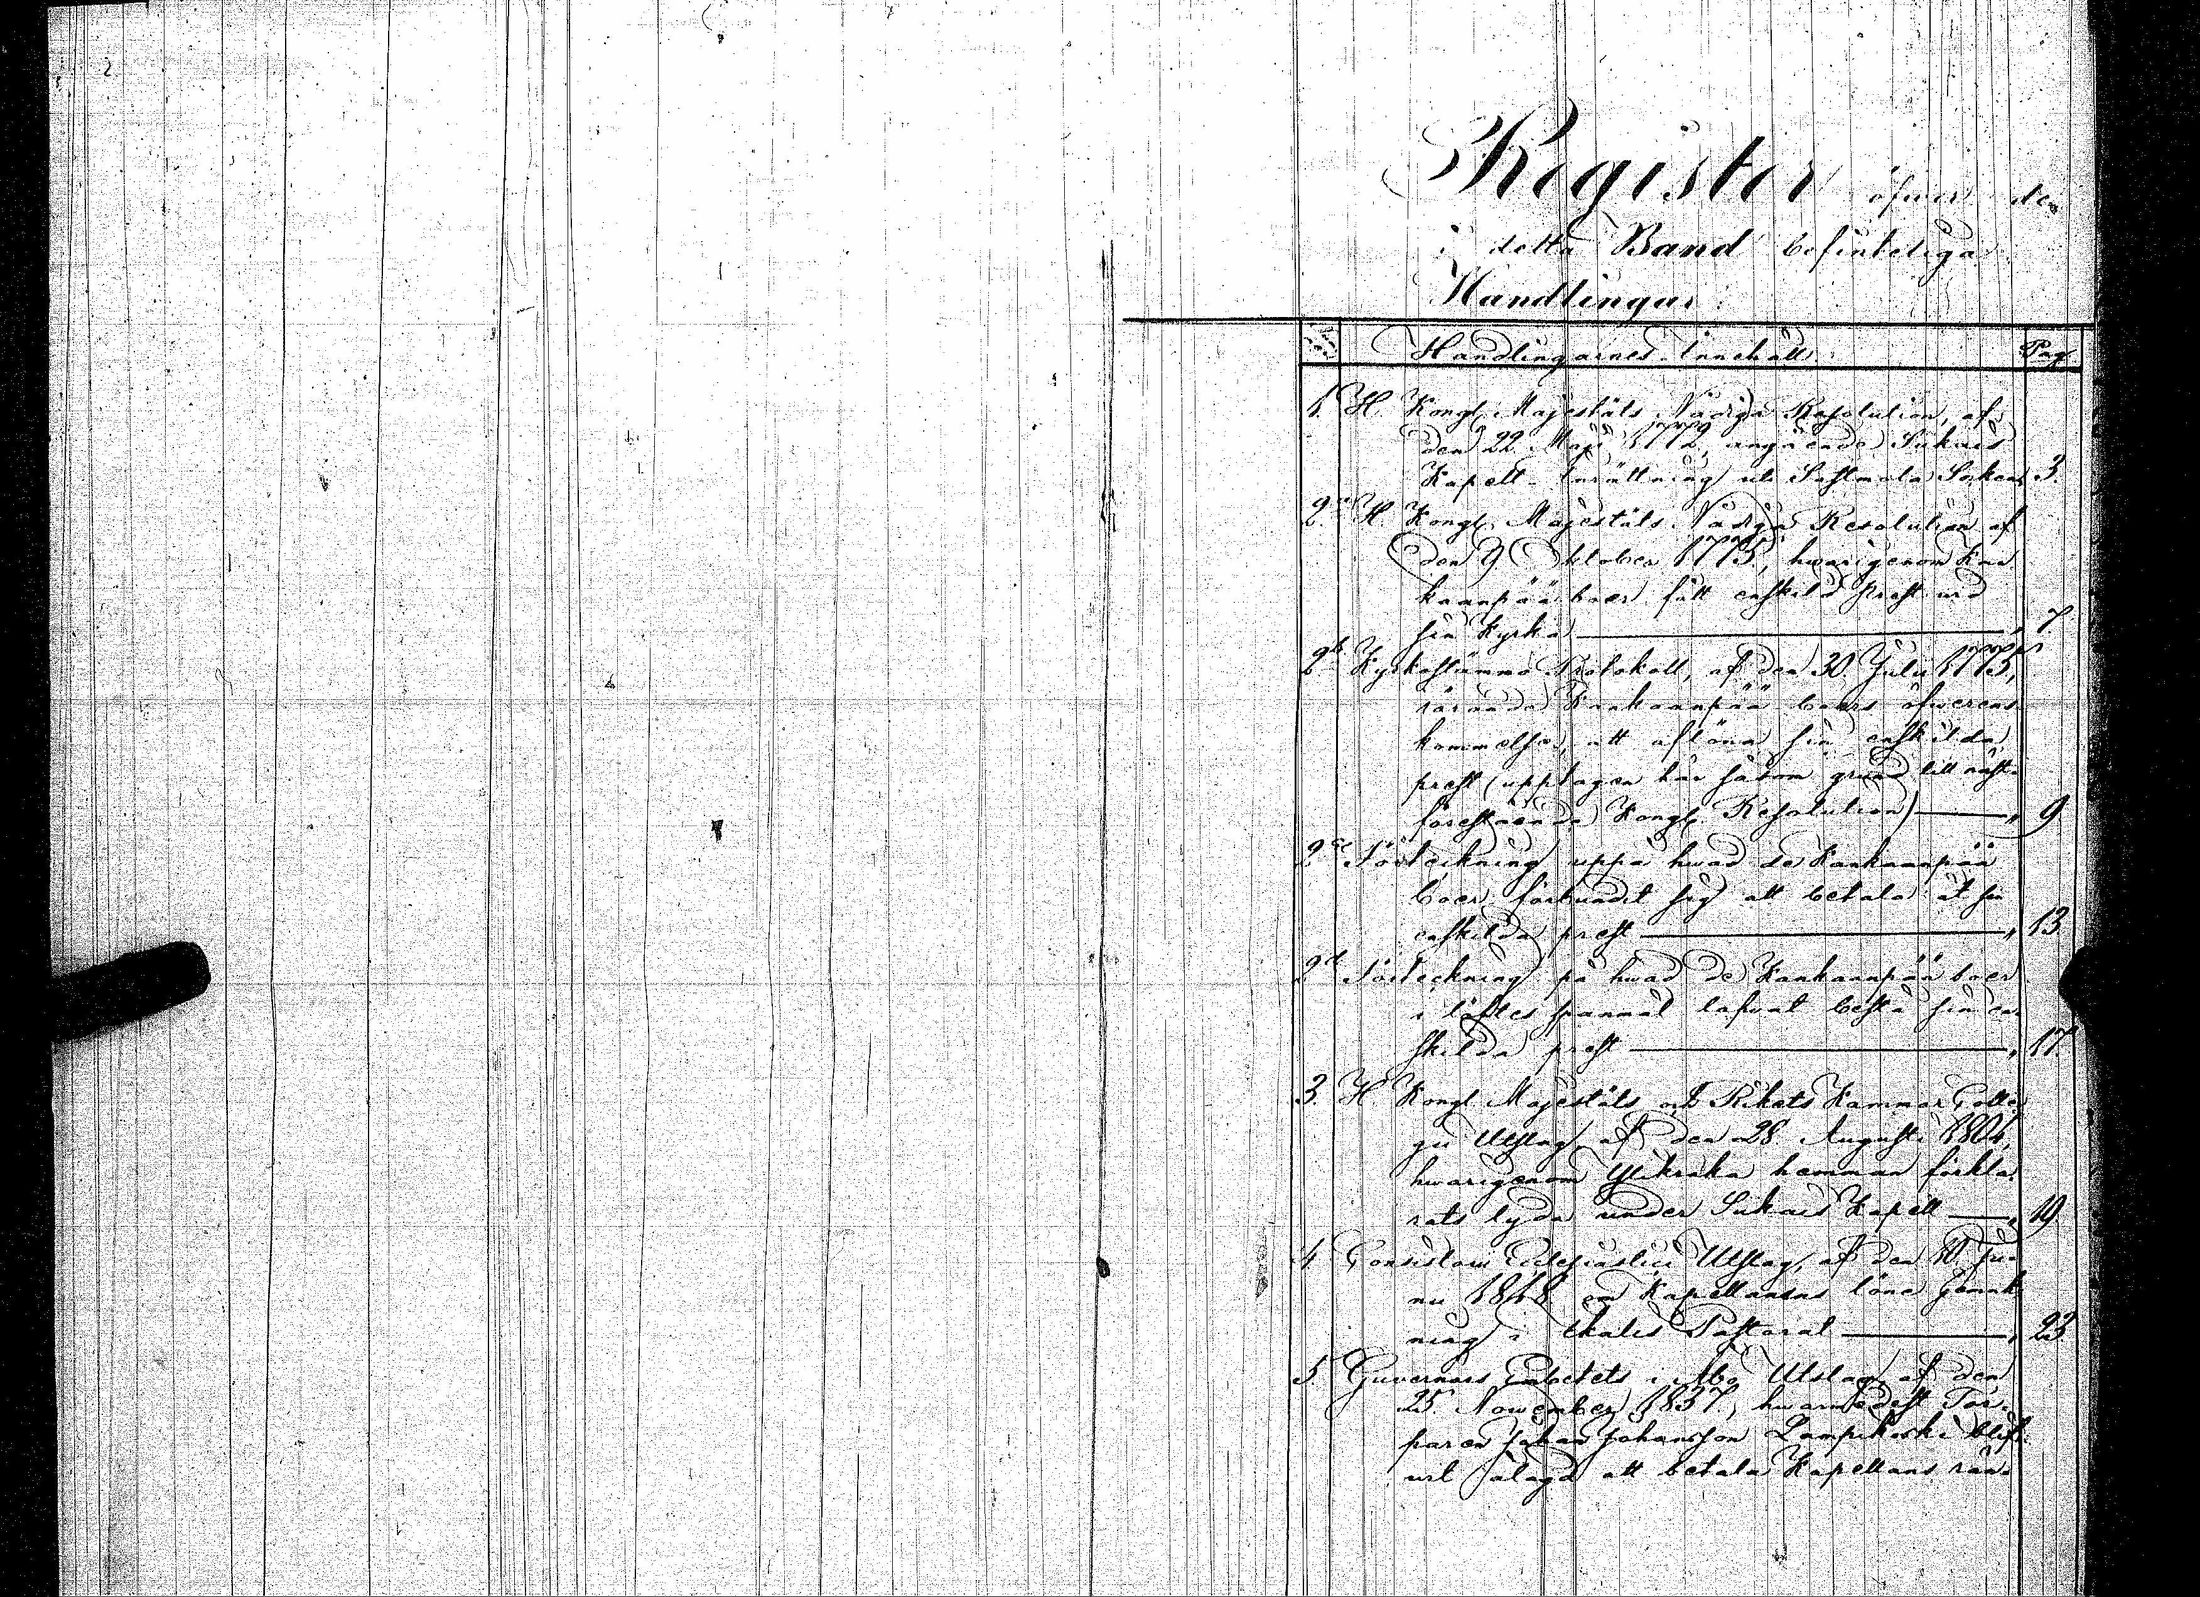 Register öfwer de
i detta Band befinteliga
Handlingar.
Handlingarnes Innehåll. Pag.
1. H. Kongl. Majestäts Nådiga Resolution, af
den 22 Maji 1772, angående Sukais
Kapell-Inrättning uti Sastmola Socken 3.
2.a H. Kongl. Majestäts Nådiga Resolution af
den 9 Oktober 1775, hwarigenom Kan
kaanpää boer fått enskild prest wid
sin Kyrka — " 7.
2.b Kyrkostämmo Protokoll, af den 30 Julii 1775,
rörande Kankaanpää boers öfwerens
kommelse, att aflöna sin enskilda
prest (upptagen här såsom grund till näst
förestående Kongl. Resolution) — " 9
2.c Förteckning uppå hwad de Kankaanpää
boer förbundit sig att betala åt sin
enskilda prest — " 13
2.d Förteckning på hwad de Kankaanpää boer
i löftes spanmål lofvat bestå sin en
skilda prest — " 17.
3. H. Kongl. Majestäts och Rikets Kammar Colle
gii Utslag af den 28 Augusti 1804,
hwarigenom hemman förkla
rats lyda under Sukais Kapell — " 19
4. Consistorii Ecclesiastici Utslag, af den 10. Ju
nii 1818 om Kapellanens löne
ning i Ulvila Pastorat — " 23
5. Guvernörs Embetets i Åbo Utslag af den
25 November 1837, hwarmedelst Tor-
paren Johan Johansson Lampikoski blif-
wit ålagd att betala Kapellans rän-